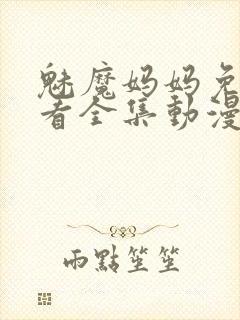 魅魔妈妈免
看全集動漫
雨點笙笙